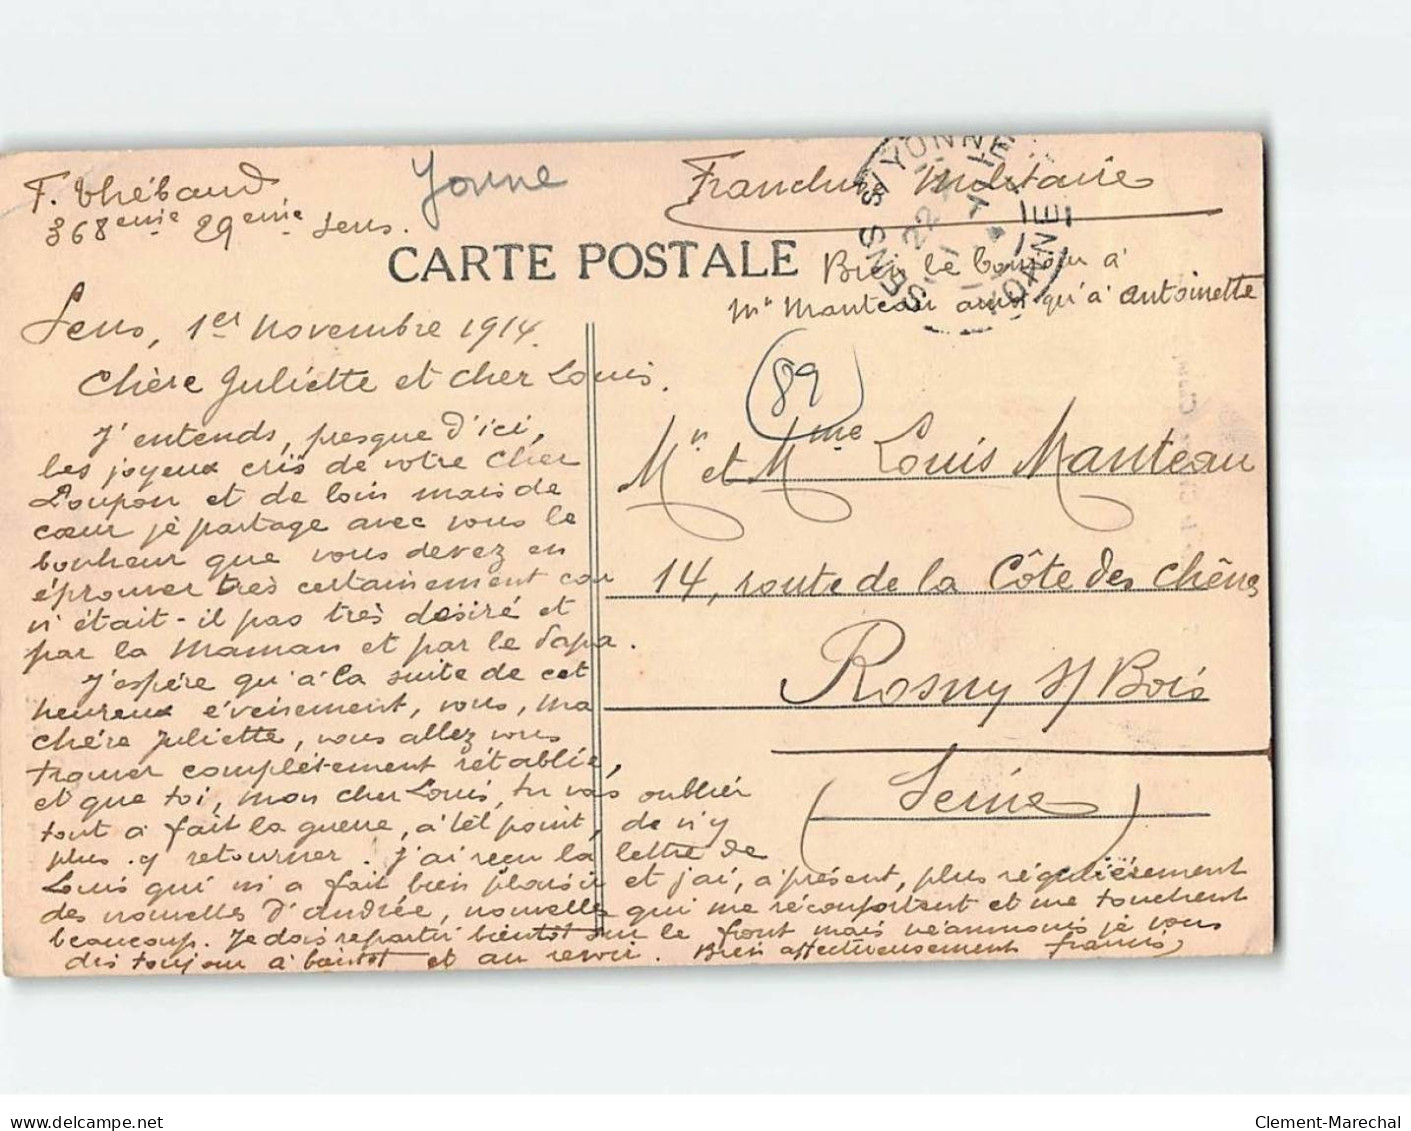 F. Thébaud
368ème 29ème Sens.
Yonne
Franchise Militaire
CARTE POSTALE
SENS S/ YONNE
YONNE
Bien le bonjour à
Mr Manteau ainsi qu'à Antoinette
89
Sens, 1er novembre 1914.
Chère Juliette et cher Louis.
J'entends, presque d'ici,
les joyeux cris de votre cher
Poupon et de loin mais de
cœur je partage avec vous le
bonheur que vous devez en
éprouver très certainement car
n'était-il pas très désiré et
par la Maman et par le Papa.
J'espère qu'à la suite de cet
heureux évènement, vous, ma
chère Juliette, vous allez vous
trouver complètement rétablie,
et que toi, mon cher Louis, tu vas oublier
tout à fait la guerre, à tel point, de n'y
plus y retourner. J'ai reçu la lettre de
Louis qui m'a fait bien plaisir et j'ai, à présent, plus régulièrement
des nouvelles d'Andrée, nouvelles qui me réconfortent et me touchent
beaucoup. Je dois repartir bientôt sur le front mais néanmoins je vous
dis toujours à bientôt et au revoir. Bien affectueusement Francis
Mr et Mme Louis Manteau
14, route de la Côte des Chênes
Rosny s/ Bois
(Seine)
Clement-Marechal
delcampe.net